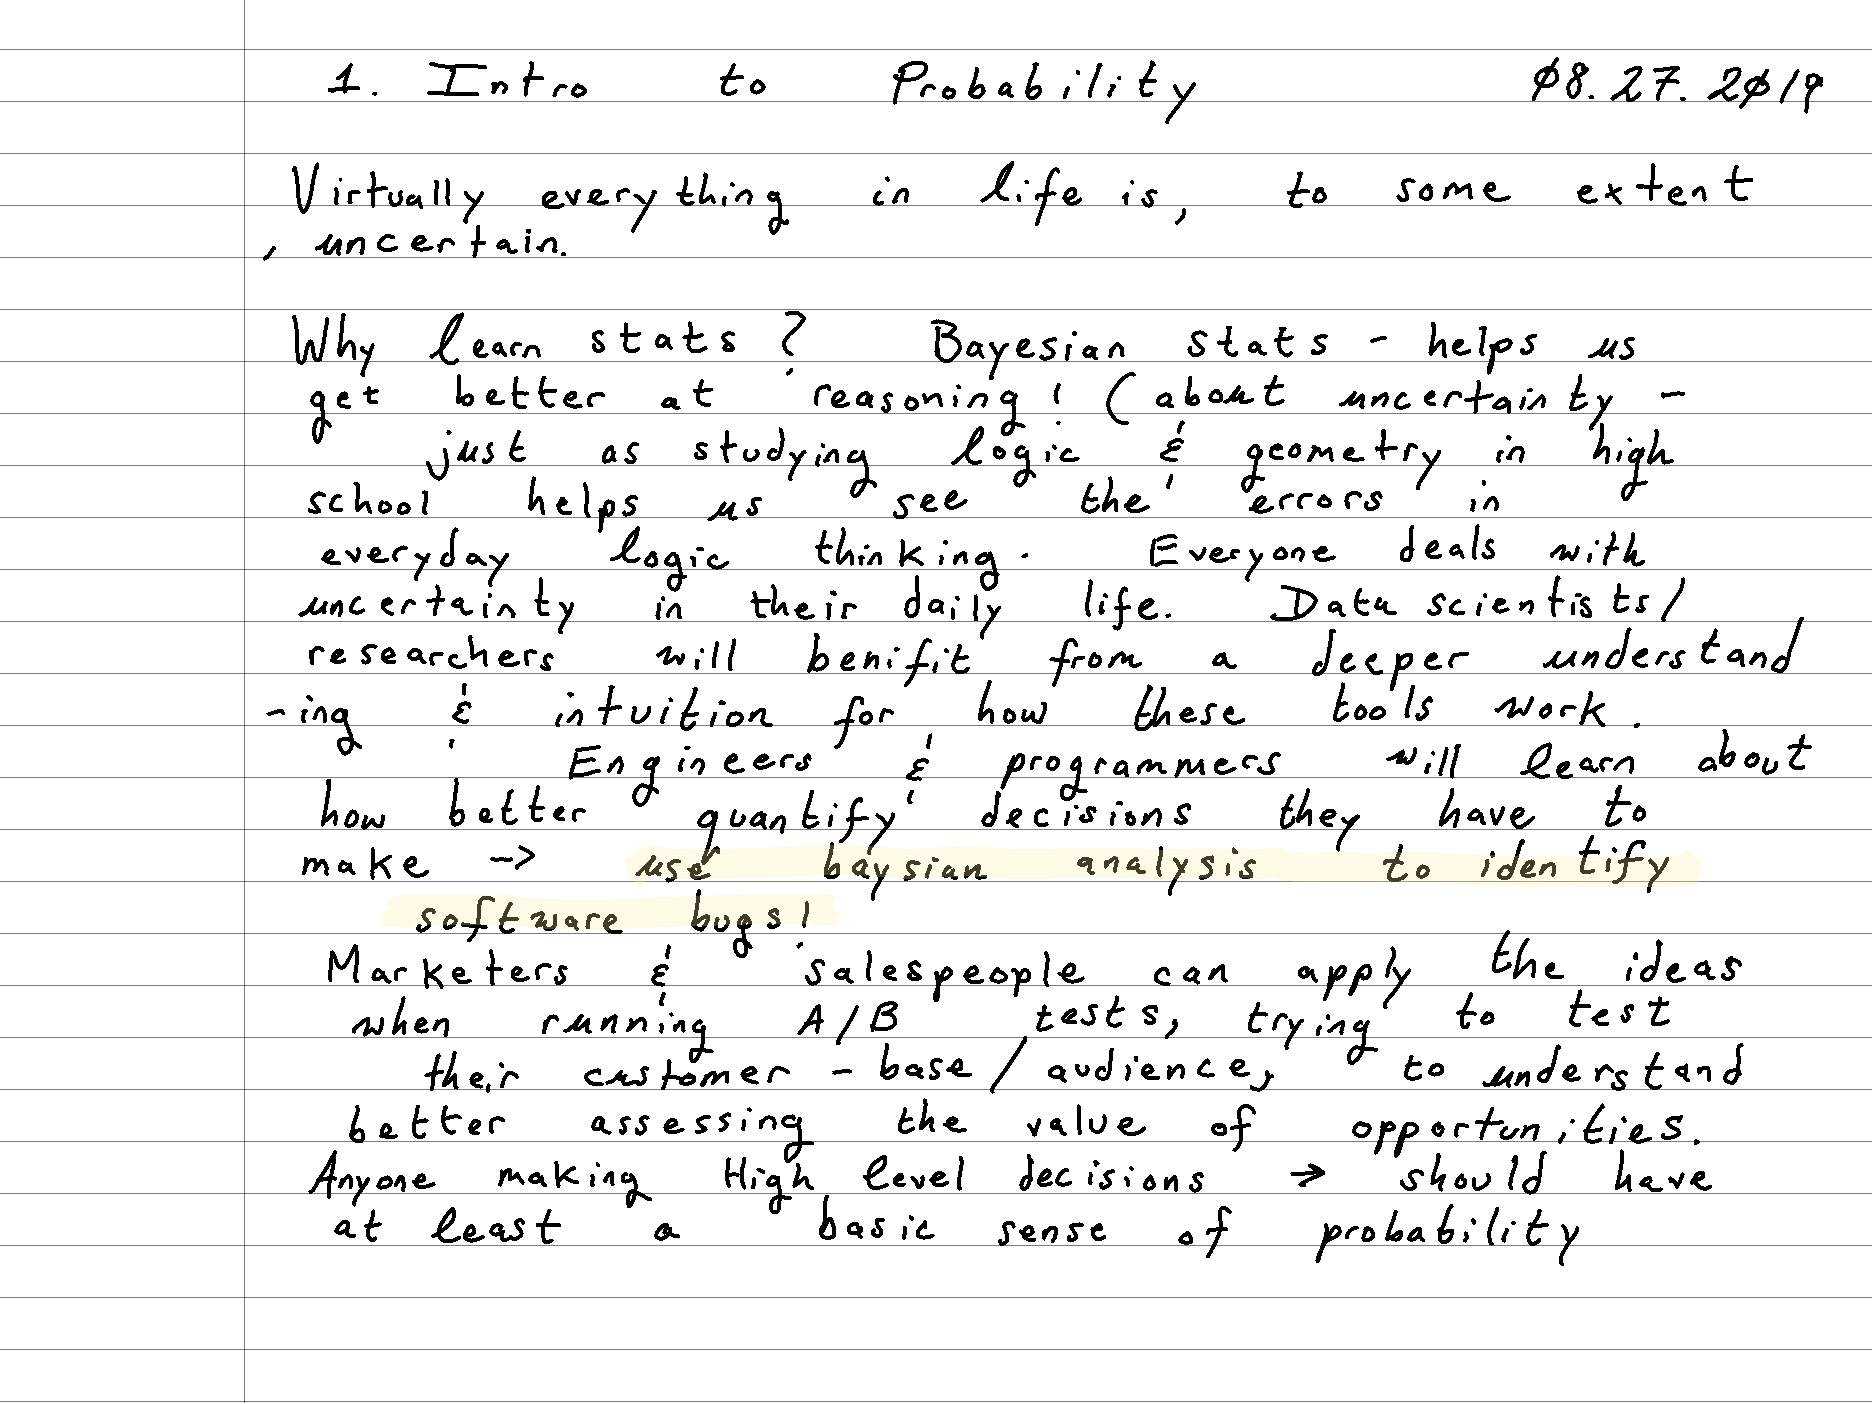 1. Intro to Probability 08.27.2019
Virtually everything in life is, to some extent
, uncertain.
Why learn stats? Bayesian stats - helps us
get better at reasoning! (about uncertainty -
just as studying logic & geometry in high
school helps us see the errors in
everyday logic thinking. Everyone deals with
uncertainty in their daily life. Data scientists/
researchers will benifit from a deeper understand
-ing & intuition for how these tools work.
Engineers & programmers will learn about
how better quantify decisions they have to
make -> use baysian analysis to identify
software bugs!
Marketers & salespeople can apply the ideas
when running A/B tests, trying to test
their customer - base / audience, to understand
better assessing the value of opportunities.
Anyone making High level decisions → should have
at least a basic sense of probability